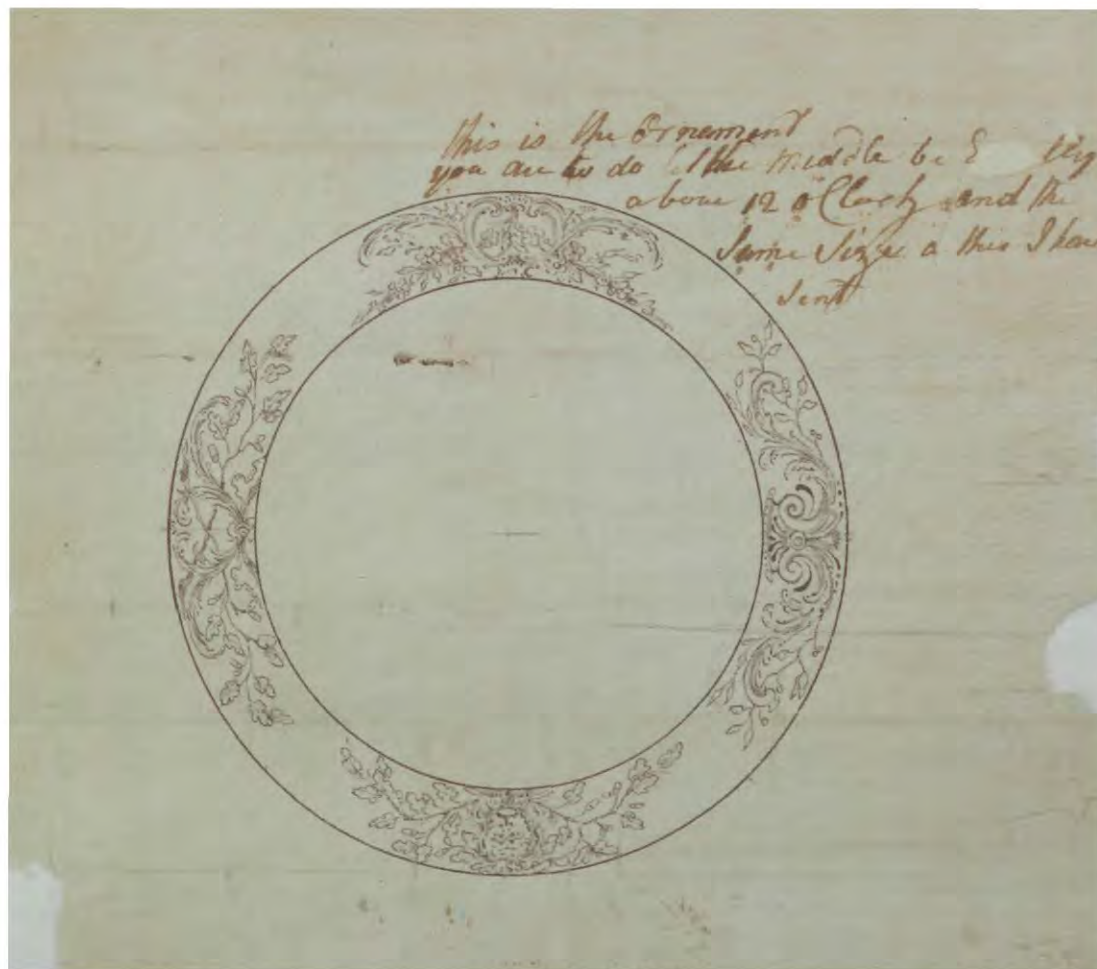 this is the Ornament
you are to do the middle be
above 12 o Clock and the
Same Size a this I have
Sent